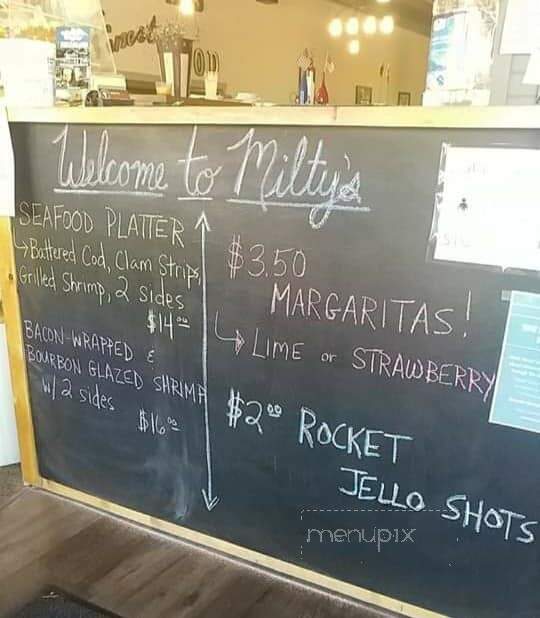 Welcome to Milty's
SEAFOOD PLATTER
Battered Cod, Clam Strips,
Grilled Shrimp, 2 Sides
$14.00
BACON-WRAPPED &
BOURBON GLAZED SHRIMP
w/ 2 sides
$16.00
$3.50
MARGARITAS!
LIME or STRAWBERRY
$2.00 ROCKET
JELLO SHOTS
menupix